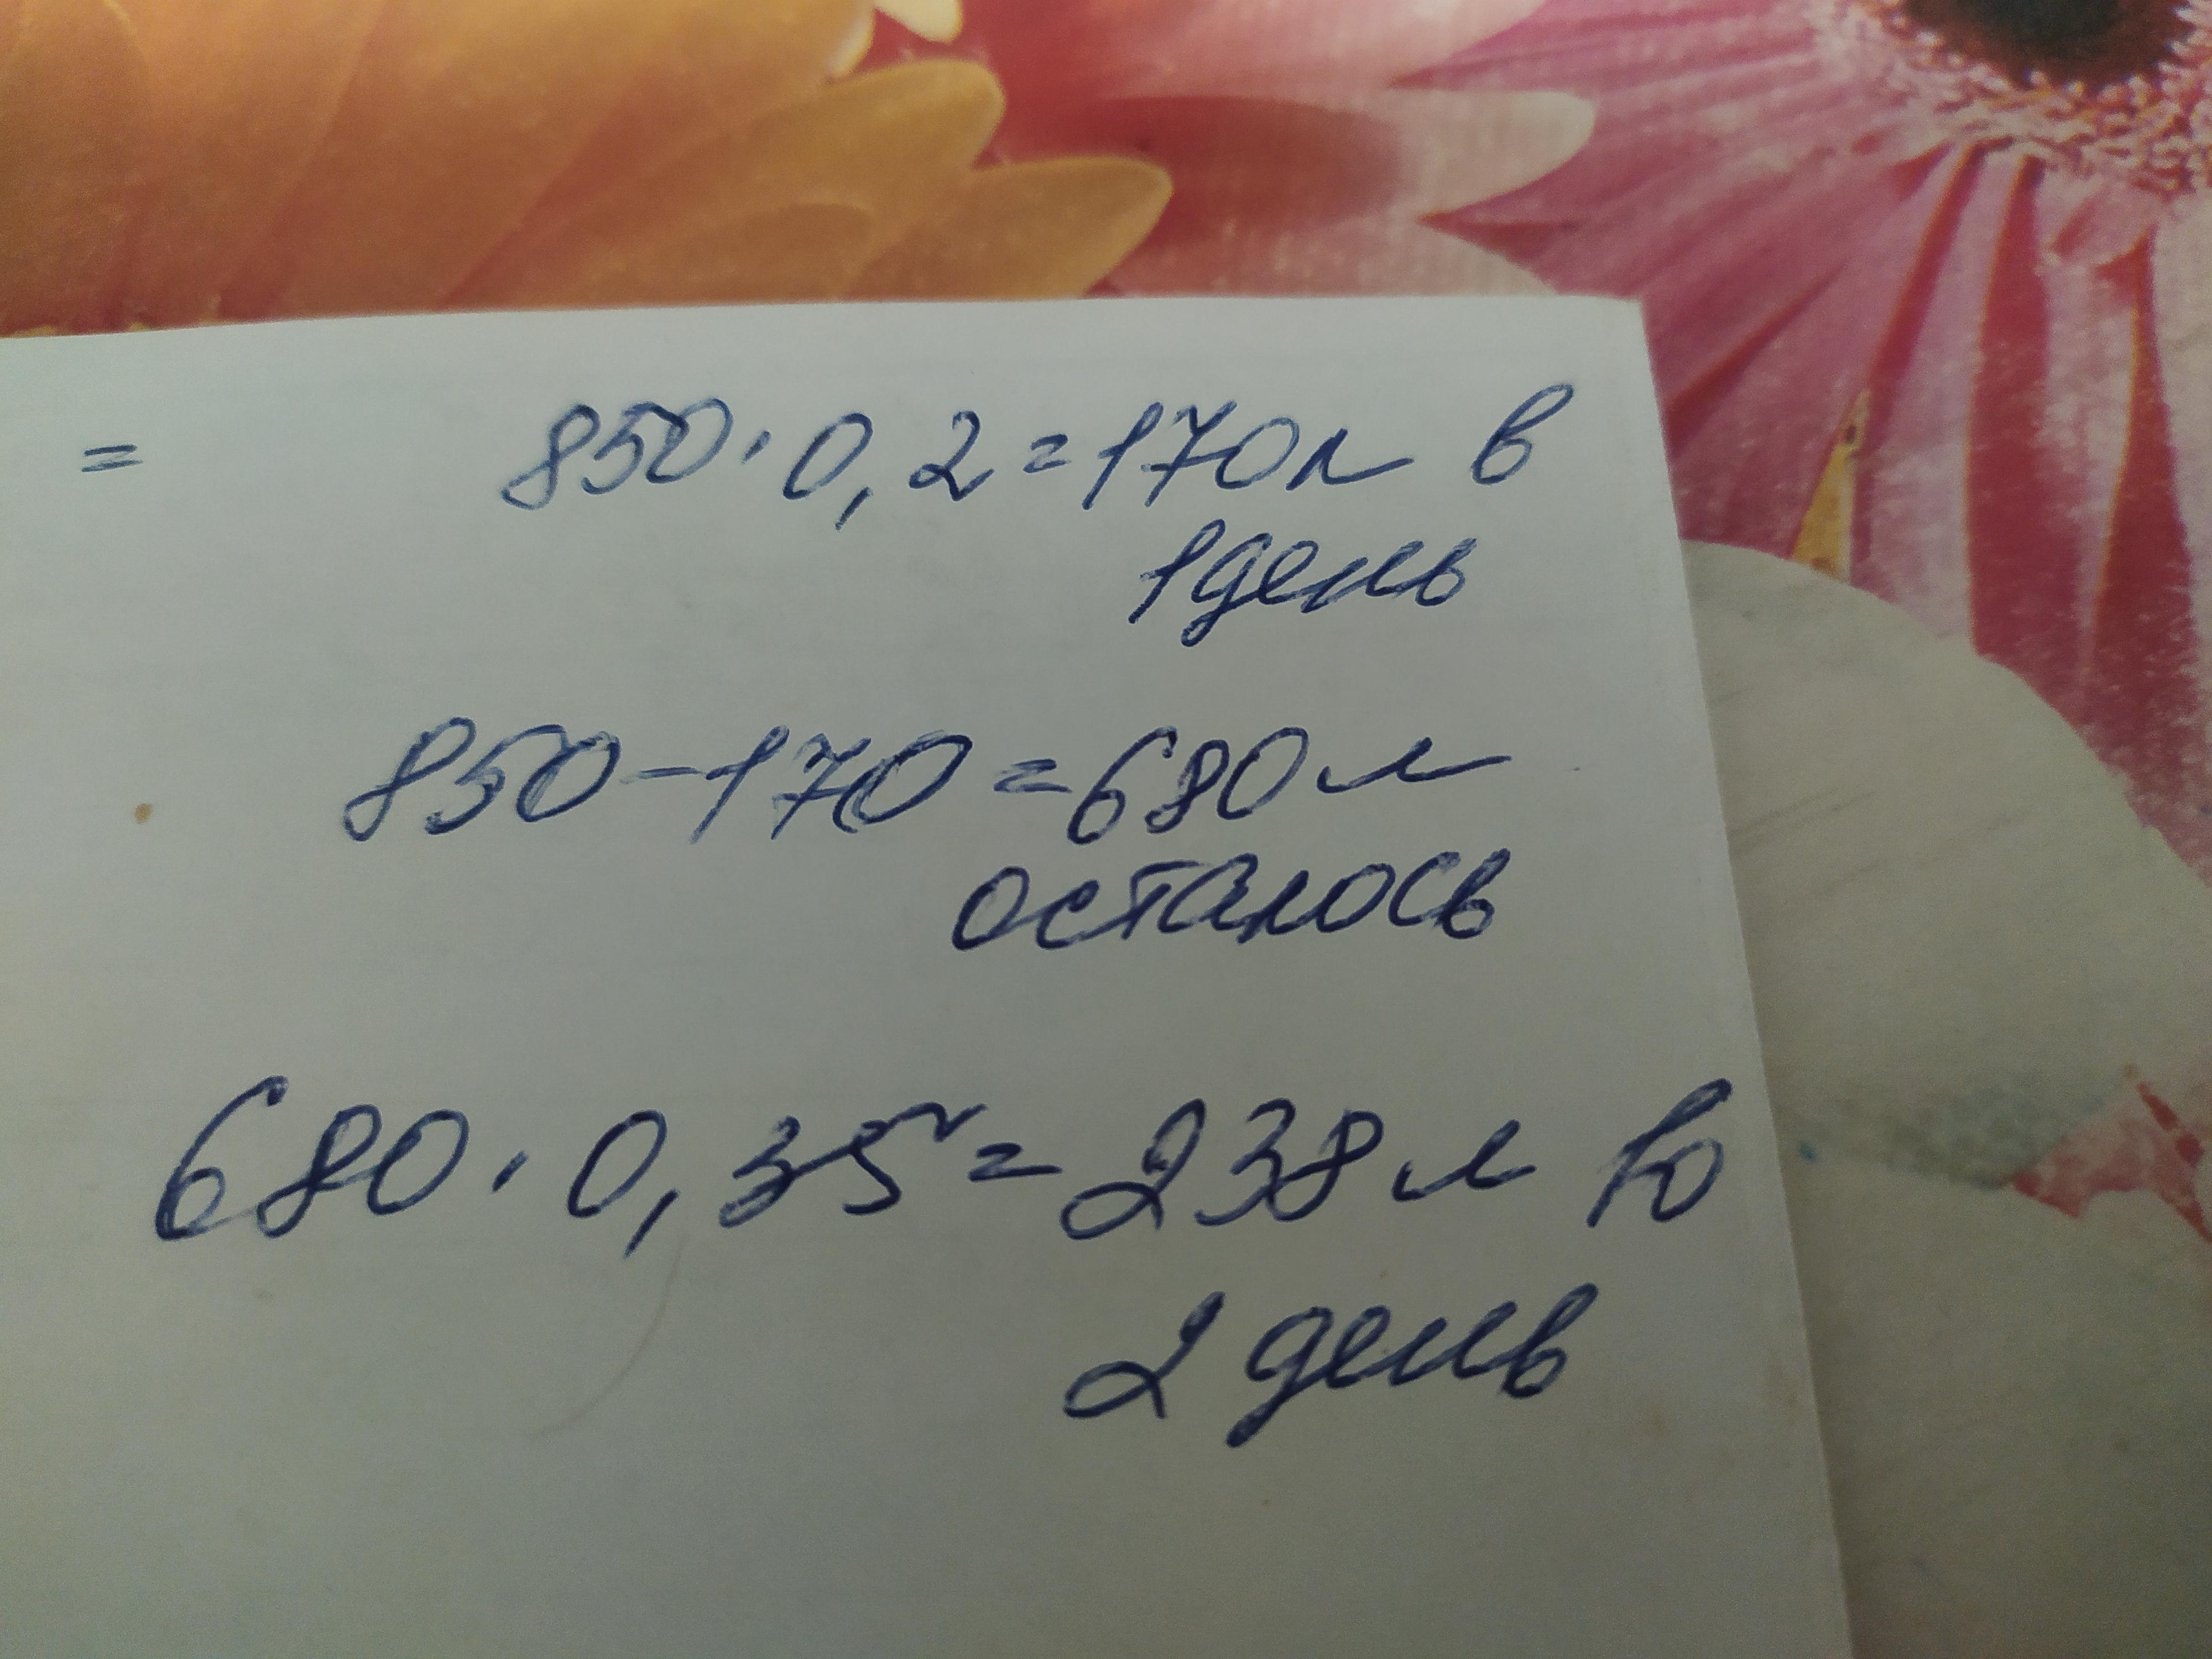 = 850 · 0,2 = 170 л в
1 день
850 - 170 = 680 л
осталось
680 · 0,35 = 238 л во
2 день